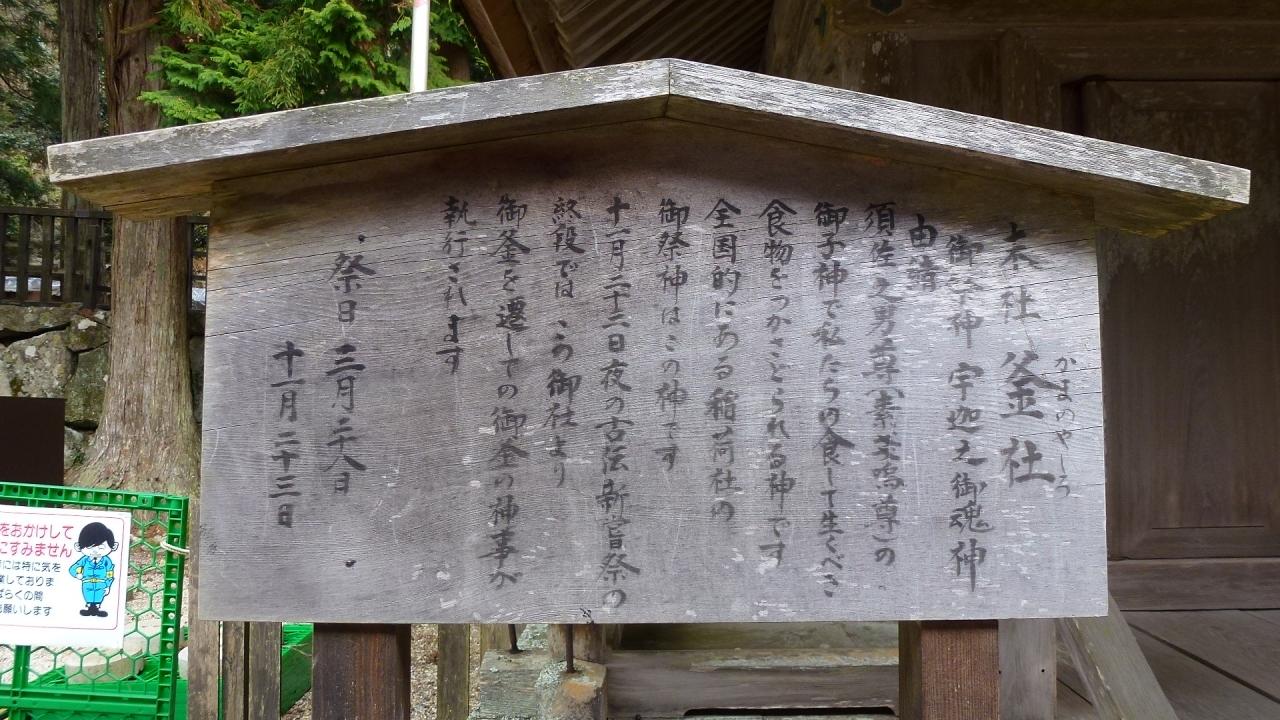 末社 釜社
かまのやしろ
御祭神 宇迦之御魂神
由緒
須佐之男尊(素戔嗚尊)の
御子神で私たちの食して生くべき
食物をつかさどられる神です
全国的にある稲荷社の
御祭神はこの神です
十一月二十三日夜の古伝新嘗祭の
終段では この御社より
御釜を遷しての御釜の神事が
執行されます
・祭日 三月二八日
十一月二十三日
をおかけして
にすみません
には特に気を
業しておりま
ばらくの間
お願いします